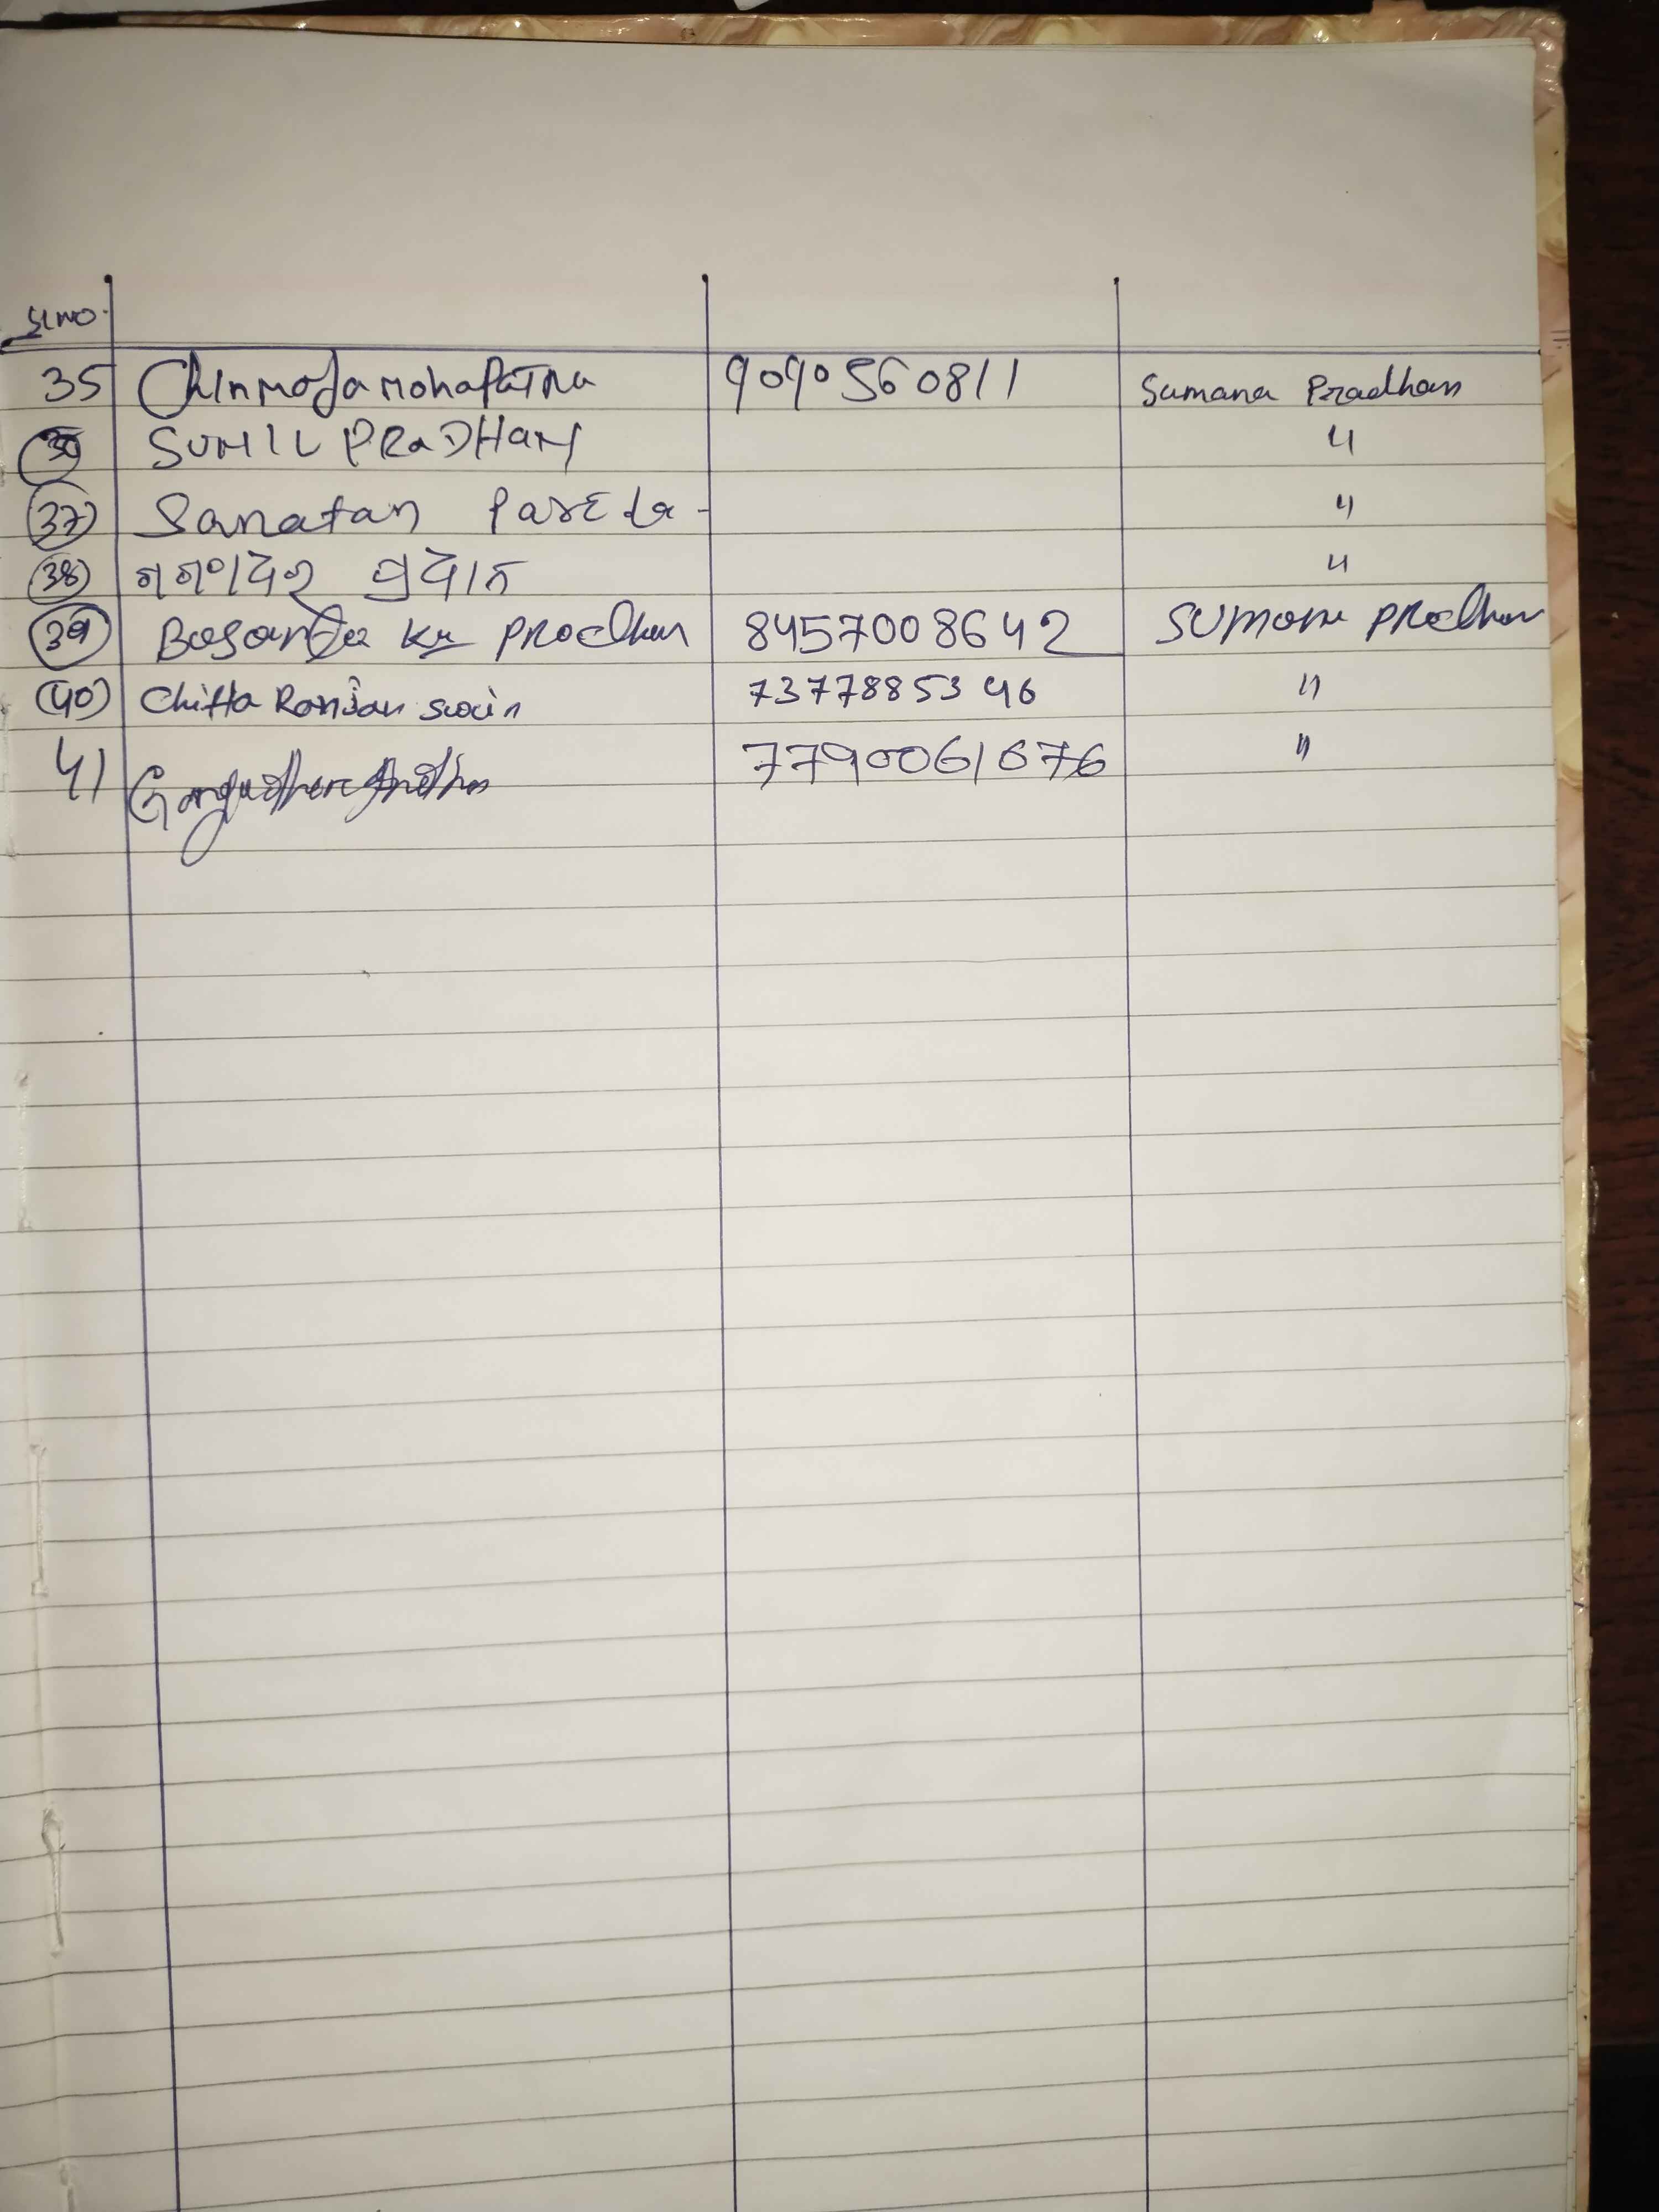 Sl NO.
35 Chinmoya Mohapatra 9090560811 Sumana Pradhan
SUNIL PRaDHaN "
37 Sanatan Pareda "
38 ଗଗଂାଧର ପ୍ରଧାନ "
39 Basanta Kr Pradhan 8457008642 Sumana Pradhan
40 Chitta Ranjan Swain 7377885346 "
41 7790061676 "